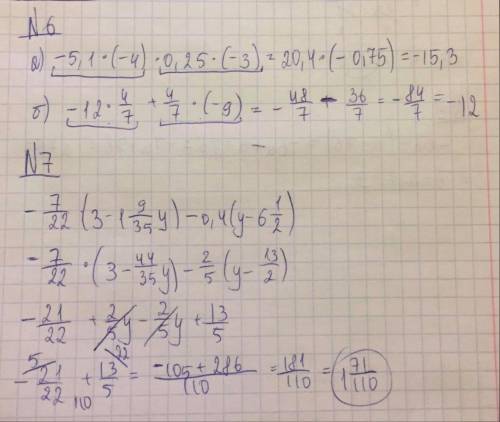 N6
а) -5,1·(-4)·0,25·(-3)=20,4·(-0,75)=-15,3
б) -12·4/7+4/7·(-9)=-48/7-36/7=-84/7=-12
N7
-7/22(3-1 9/35y)-0,4(y-6 1/2)
-7/22·(3-44/35y)-2/5(y-13/2)
-21/22+2/5y-2/5y+13/5
-21/22 5+13/5 22 110=-105+286/110=181/110=1 71/110